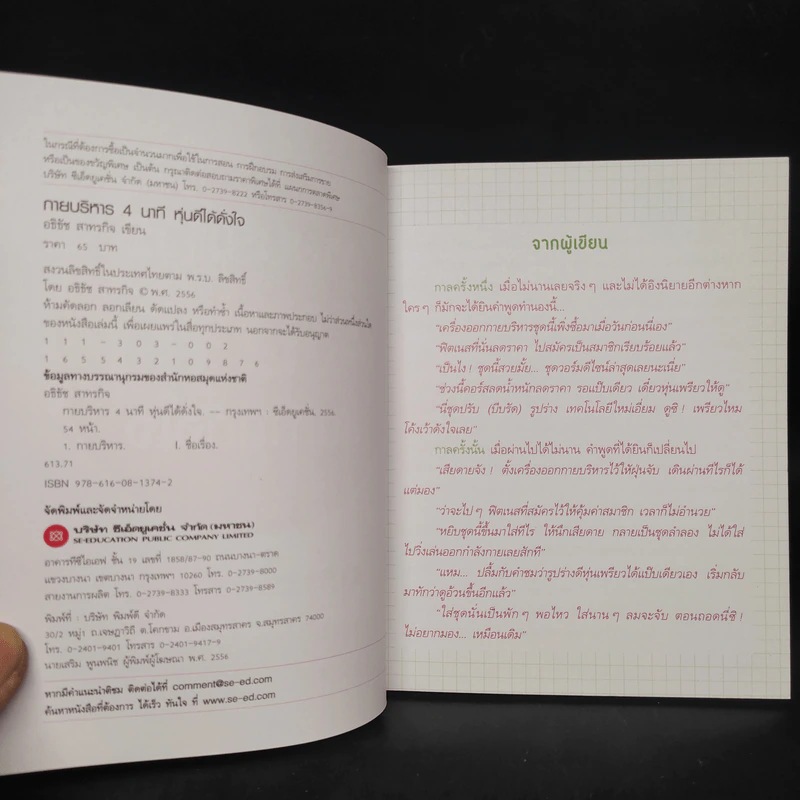 ในกรณีที่ต้องการซื้อเป็นจำนวนมากเพื่อใช้ในการสอน การฝึกอบรม การส่งเสริมการขาย
หรือเป็นของขวัญพิเศษ เป็นต้น กรุณาติดต่อสอบถามราคาพิเศษได้ที่ แผนกการตลาดพิเศษ
บริษัท ซีเอ็ดยูเคชั่น จำกัด (มหาชน) โทร. 0-2739-8222 หรือโทรสาร 0-2739-8356-9
กายบริหาร 4 นาที หุ่นดีได้ดั่งใจ
อธิธัช สาทรกิจ เขียน
ราคา 65 บาท
สงวนลิขสิทธิ์ในประเทศไทยตาม พ.ร.บ. ลิขสิทธิ์
โดย อธิธัช สาทรกิจ © พ.ศ. 2556
ห้ามคัดลอก ลอกเลียน ดัดแปลง หรือทำซ้ำ เนื้อหาและภาพประกอบ ไม่ว่าส่วนหนึ่งส่วนใด
ของหนังสือเล่มนี้ เพื่อเผยแพร่ในสื่อทุกประเภท นอกจากจะได้รับอนุญาต
1 1 1 - 3 0 3 - 0 0 2
1 6 5 5 4 3 2 1 0 9 8 7 6
ข้อมูลทางบรรณานุกรมของสำนักหอสมุดแห่งชาติ
อธิธัช สาทรกิจ
กายบริหาร 4 นาที หุ่นดีได้ดั่งใจ. -- กรุงเทพฯ : ซีเอ็ดยูเคชั่น, 2556.
54 หน้า.
1. กายบริหาร. I. ชื่อเรื่อง.
613.71
ISBN 978-616-08-1374-2
จัดพิมพ์และจัดจำหน่ายโดย
บริษัท ซีเอ็ดยูเคชั่น จำกัด (มหาชน)
SE-EDUCATION PUBLIC COMPANY LIMITED
อาคารทีซีไอเอฟ ชั้น 19 เลขที่ 1858/87-90 ถนนบางนา-ตราด
แขวงบางนา เขตบางนา กรุงเทพฯ 10260 โทร. 0-2739-8000
สายงานการผลิต โทร. 0-2739-8333 โทรสาร 0-2739-8589
พิมพ์ที่ : บริษัท พิมพ์ดี จำกัด
30/2 หมู่1 ถ.เจษฎาวิถี ต.โคกขาม อ.เมืองสมุทรสาคร จ.สมุทรสาคร 74000
โทร. 0-2401-9401 โทรสาร 0-2401-9417-9
นายเสริม พูนพนิช ผู้พิมพ์ผู้โฆษณา พ.ศ. 2556
หากมีคำแนะนำติชม ติดต่อได้ที่ comment@se-ed.com
ค้นหาหนังสือที่ต้องการ ได้เร็ว ทันใจ ที่ www.se-ed.com
จากผู้เขียน
กาลครั้งหนึ่ง เมื่อไม่นานเลยจริงๆ และไม่ได้อิงนิยายอีกต่างหาก
ใครๆ ก็มักจะได้ยินคำพูดทำนองนี้...
"เครื่องออกกายบริหารชุดนี้เพิ่งซื้อมาเมื่อวันก่อนนี่เอง"
"ฟิตเนสที่นั่นลดราคา ไปสมัครเป็นสมาชิกเรียบร้อยแล้ว"
"เป็นไง! ชุดนี้สวยมั้ย... ชุดวอร์มดีไซน์ล่าสุดเลยนะเนี่ย"
"ช่วงนี้คอร์สลดน้ำหนักลดราคา รอแป๊บเดียว เดี๋ยวหุ่นเพรียวให้ดู"
"นี่ชุดปรับ (บีบรัด) รูปร่าง เทคโนโลยีใหม่เอี่ยม ดูซิ! เพรียวไหม
โค้งเว้าดั่งใจเลย"
กาลครั้งนั้น เมื่อผ่านไปได้ไม่นาน คำพูดที่ได้ยินก็เปลี่ยนไป
"เสียดายจัง! ตั้งเครื่องออกกายบริหารไว้ให้ฝุ่นจับ เดินผ่านทีไรก็ได้
แต่มอง"
"ว่าจะไปๆ ฟิตเนสที่สมัครไว้ให้คุ้มค่าสมาชิก เวลาก็ไม่อำนวย"
"หยิบชุดนี้ขึ้นมาใส่ทีไร ให้นึกเสียดาย กลายเป็นชุดลำลอง ไม่ได้ใส่
ไปวิ่งเล่นออกกำลังกายเลยสักที"
"แหม... ปลื้มกับคำชมว่ารูปร่างดีหุ่นเพรียวได้แป๊บเดียวเอง เริ่มกลับ
มาทักว่าดูอ้วนขึ้นอีกแล้ว"
"ใส่ชุดนั่นเป็นพักๆ พอไหว ใส่นานๆ ลมจะจับ ตอนถอดนี่ซิ!
ไม่อยากมอง... เหมือนเดิม"